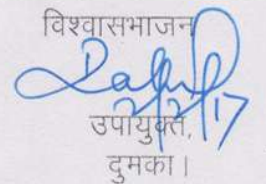 विश्वासभाजन
उपायुक्त,
दुमका।